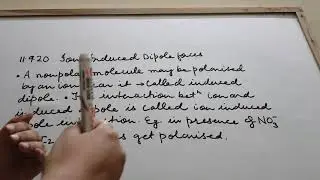 11.9.20. Ion Induced Dipole forces
• A nonpolar molecule may be polarised
by an ion near it → called induced
dipole. • The interaction betⁿ ion and
induced dipole is called ion induced
dipole interaction. Eg in presence of NO₃⁻
get polarised.